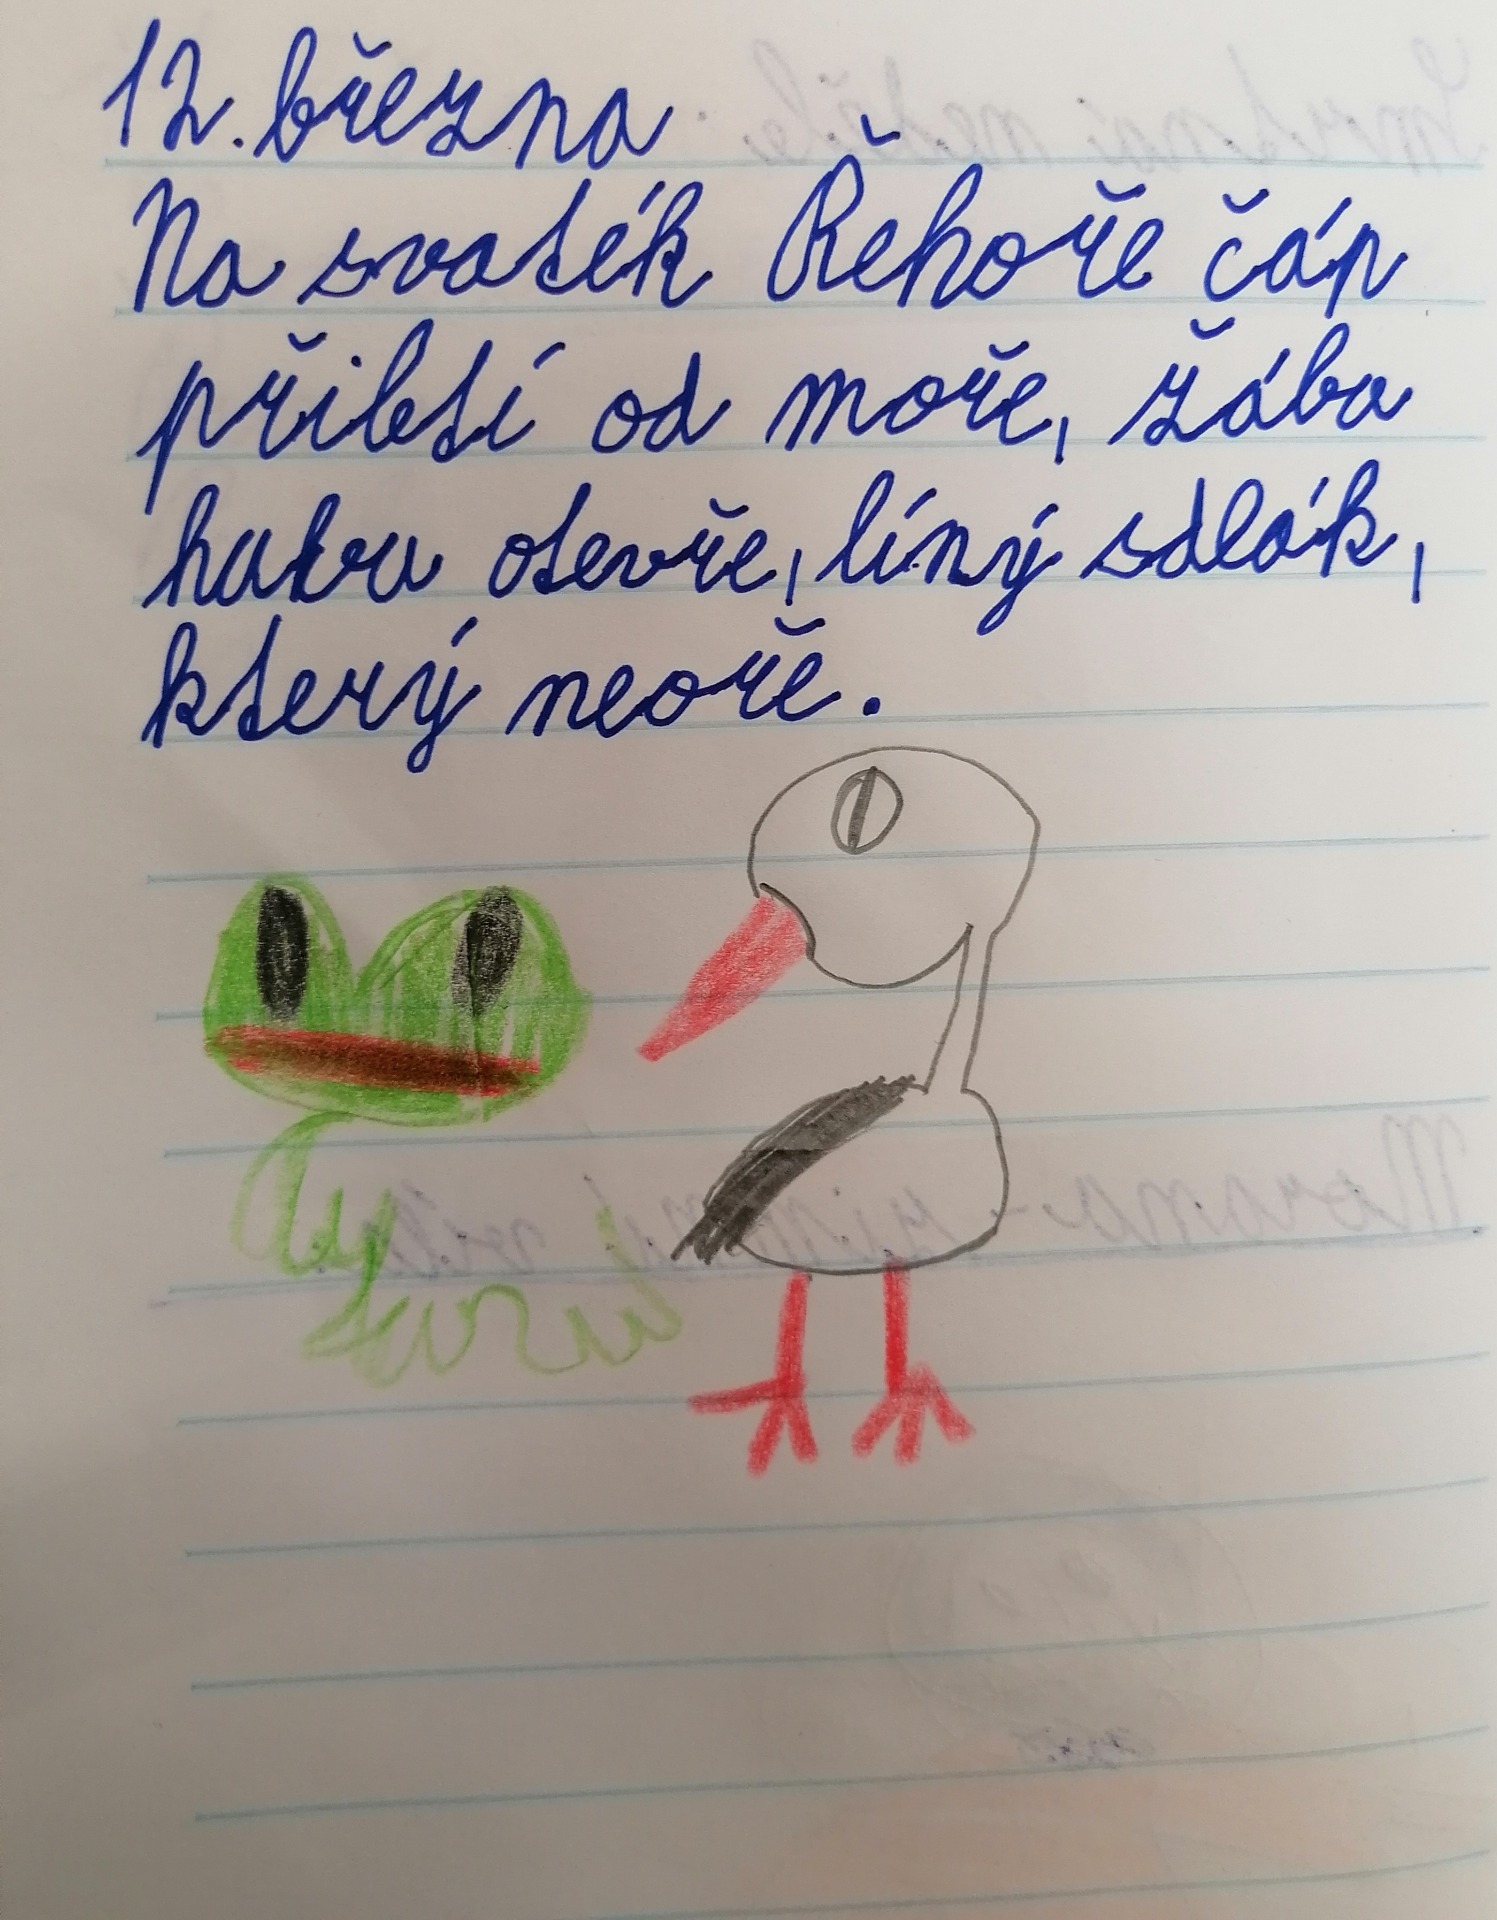 12. března
Na svaték Řehoře čáp
přiletí od moře, žába
hubu otevře, líný sdlák,
který neoře.